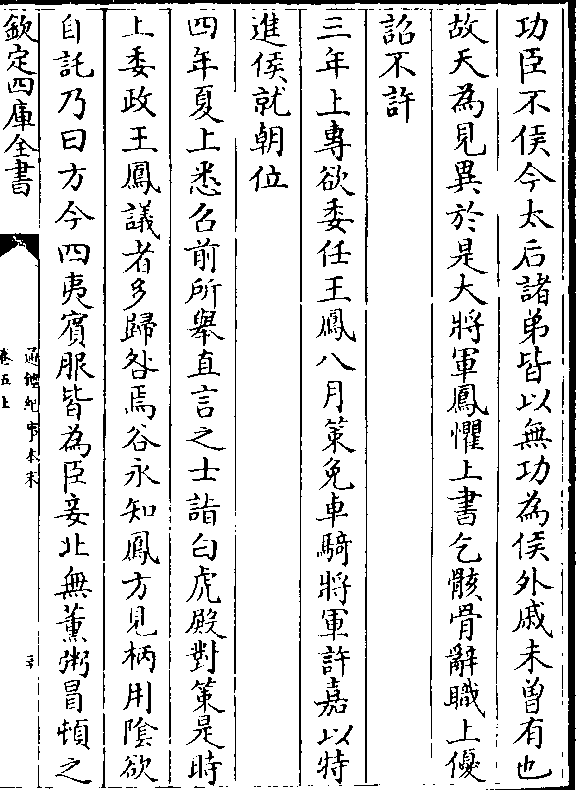 功臣不侯今太后諸弟皆以無功為侯外戚未曽有也
故天為見異於是大將軍鳳懼上書乞骸骨辭職上優
詔不許
三年上專欲委任王鳳八月策免車騎將軍許嘉以特
進侯就朝位
四年夏上悉召前所舉直言之士詣白虎殿對策是時
上委政王鳳議者多歸咎焉谷永知鳳方見柄用隂欲
自託乃曰方今四夷賓服皆為臣妾北無薰粥冒頓之
欽定四庫全書
通鑑紀事本末
卷五上